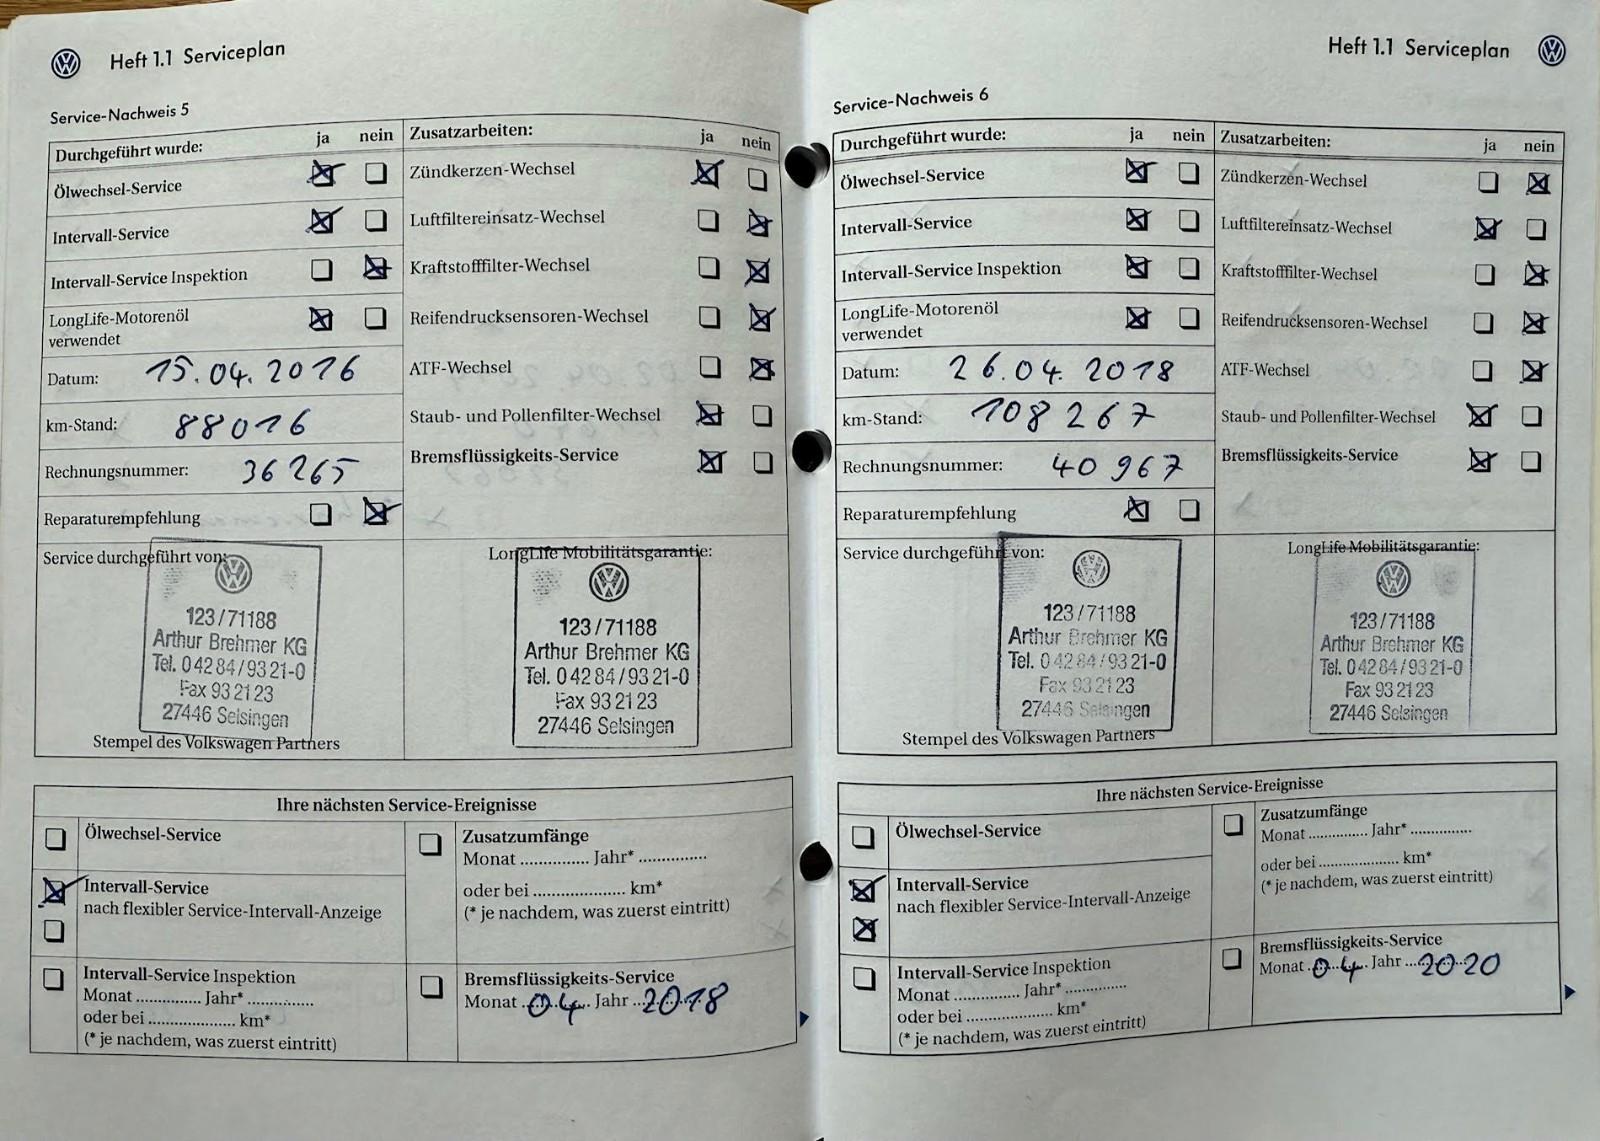 Heft 1.1 Serviceplan
Service-Nachweis 5
Durchgeführt wurde: ja nein
Ölwechsel-Service
Intervall-Service
Intervall-Service Inspektion
LongLife-Motorenöl
verwendet
Datum: 15.04.2016
km-Stand: 88016
Rechnungsnummer: 36265
Reparaturempfehlung
Zusatzarbeiten: ja nein
Zündkerzen-Wechsel
Luftfiltereinsatz-Wechsel
Kraftstofffilter-Wechsel
Reifendrucksensoren-Wechsel
ATF-Wechsel
Staub- und Pollenfilter-Wechsel
Bremsflüssigkeits-Service
Service durchgeführt von:
123/71188
Arthur Brehmer KG
Tel. 04284/9321-0
Fax 932123
27446 Selsingen
Stempel des Volkswagen Partners
LongLife Mobilitätsgarantie:
123/71188
Arthur Brehmer KG
Tel. 04284/9321-0
Fax 932123
27446 Selsingen
Ihre nächsten Service-Ereignisse
Ölwechsel-Service
Intervall-Service
nach flexibler Service-Intervall-Anzeige
Intervall-Service Inspektion
Monat .............. Jahr* ..............
oder bei .................... km*
(* je nachdem, was zuerst eintritt)
Zusatzumfänge
Monat .............. Jahr* ..............
oder bei .................... km*
(* je nachdem, was zuerst eintritt)
Bremsflüssigkeits-Service
Monat 04 Jahr 2018
Heft 1.1 Serviceplan
Service-Nachweis 6
Durchgeführt wurde: ja nein
Ölwechsel-Service
Intervall-Service
Intervall-Service Inspektion
LongLife-Motorenöl
verwendet
Datum: 26.04.2018
km-Stand: 108267
Rechnungsnummer: 40967
Reparaturempfehlung
Zusatzarbeiten: ja nein
Zündkerzen-Wechsel
Luftfiltereinsatz-Wechsel
Kraftstofffilter-Wechsel
Reifendrucksensoren-Wechsel
ATF-Wechsel
Staub- und Pollenfilter-Wechsel
Bremsflüssigkeits-Service
Service durchgeführt von:
123/71188
Arthur Brehmer KG
Tel. 04284/9321-0
Fax 932123
27446 Selsingen
Stempel des Volkswagen Partners
LongLife Mobilitätsgarantie:
123/71188
Arthur Brehmer KG
Tel. 04284/9321-0
Fax 932123
27446 Selsingen
Ihre nächsten Service-Ereignisse
Ölwechsel-Service
Intervall-Service
nach flexibler Service-Intervall-Anzeige
Intervall-Service Inspektion
Monat .............. Jahr* ..............
oder bei .................... km*
(* je nachdem, was zuerst eintritt)
Zusatzumfänge
Monat .............. Jahr* ..............
oder bei .................... km*
(* je nachdem, was zuerst eintritt)
Bremsflüssigkeits-Service
Monat 04 Jahr 2020